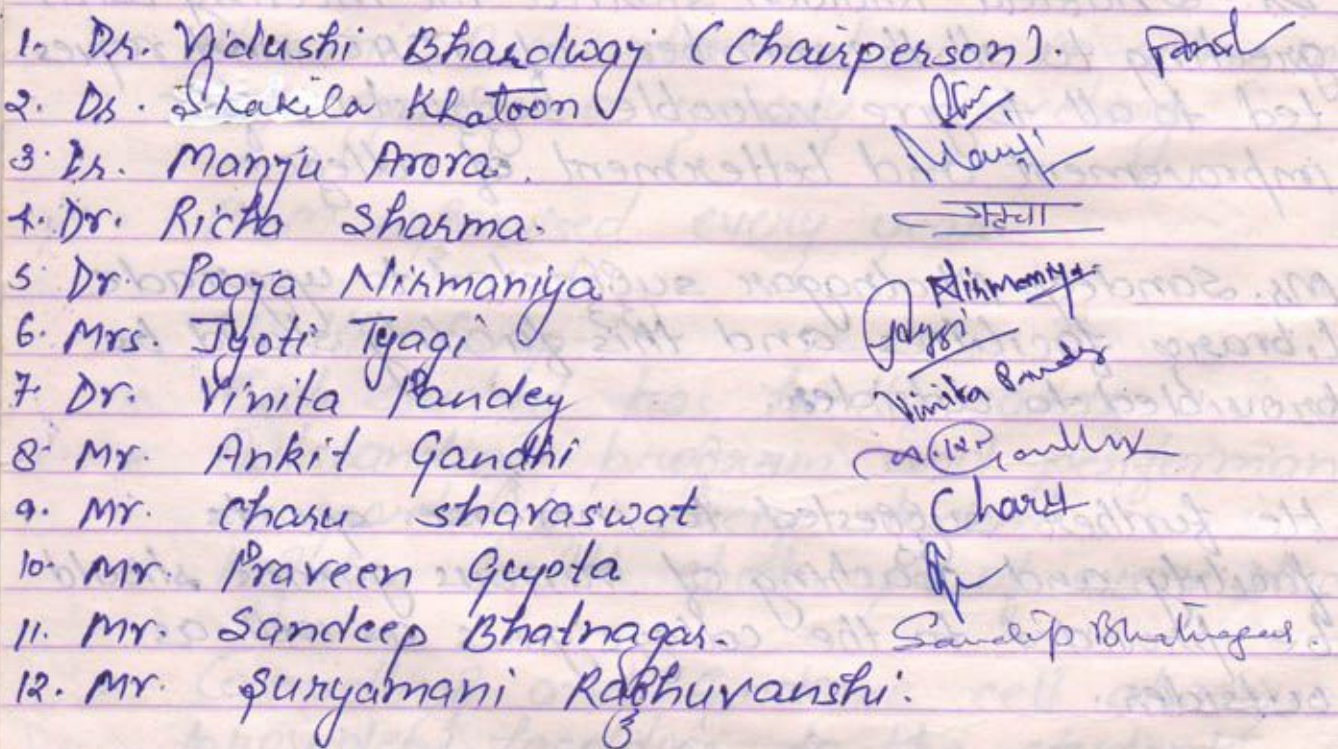 1. Dr. Vidushi Bhardwaj (Chairperson).
2. Dr. Shakila Khatoon
3. Dr. Manju Arora.
4. Dr. Richa Sharma.
5 Dr. Pooja Nirmaniya Nirmaniya
6. Mrs. Jyoti Tyagi
7 Dr. Vinita Pandey Vinita Pandey
8 Mr. Ankit Gandhi A.K. Gandhi
9. Mr. Charu Sharaswat Charu
10. Mr. Praveen Gupta
11. Mr. Sandeep Bhatnagar. Sandip Bhatnagar.
12. Mr. Suryamani Raghuvanshi.